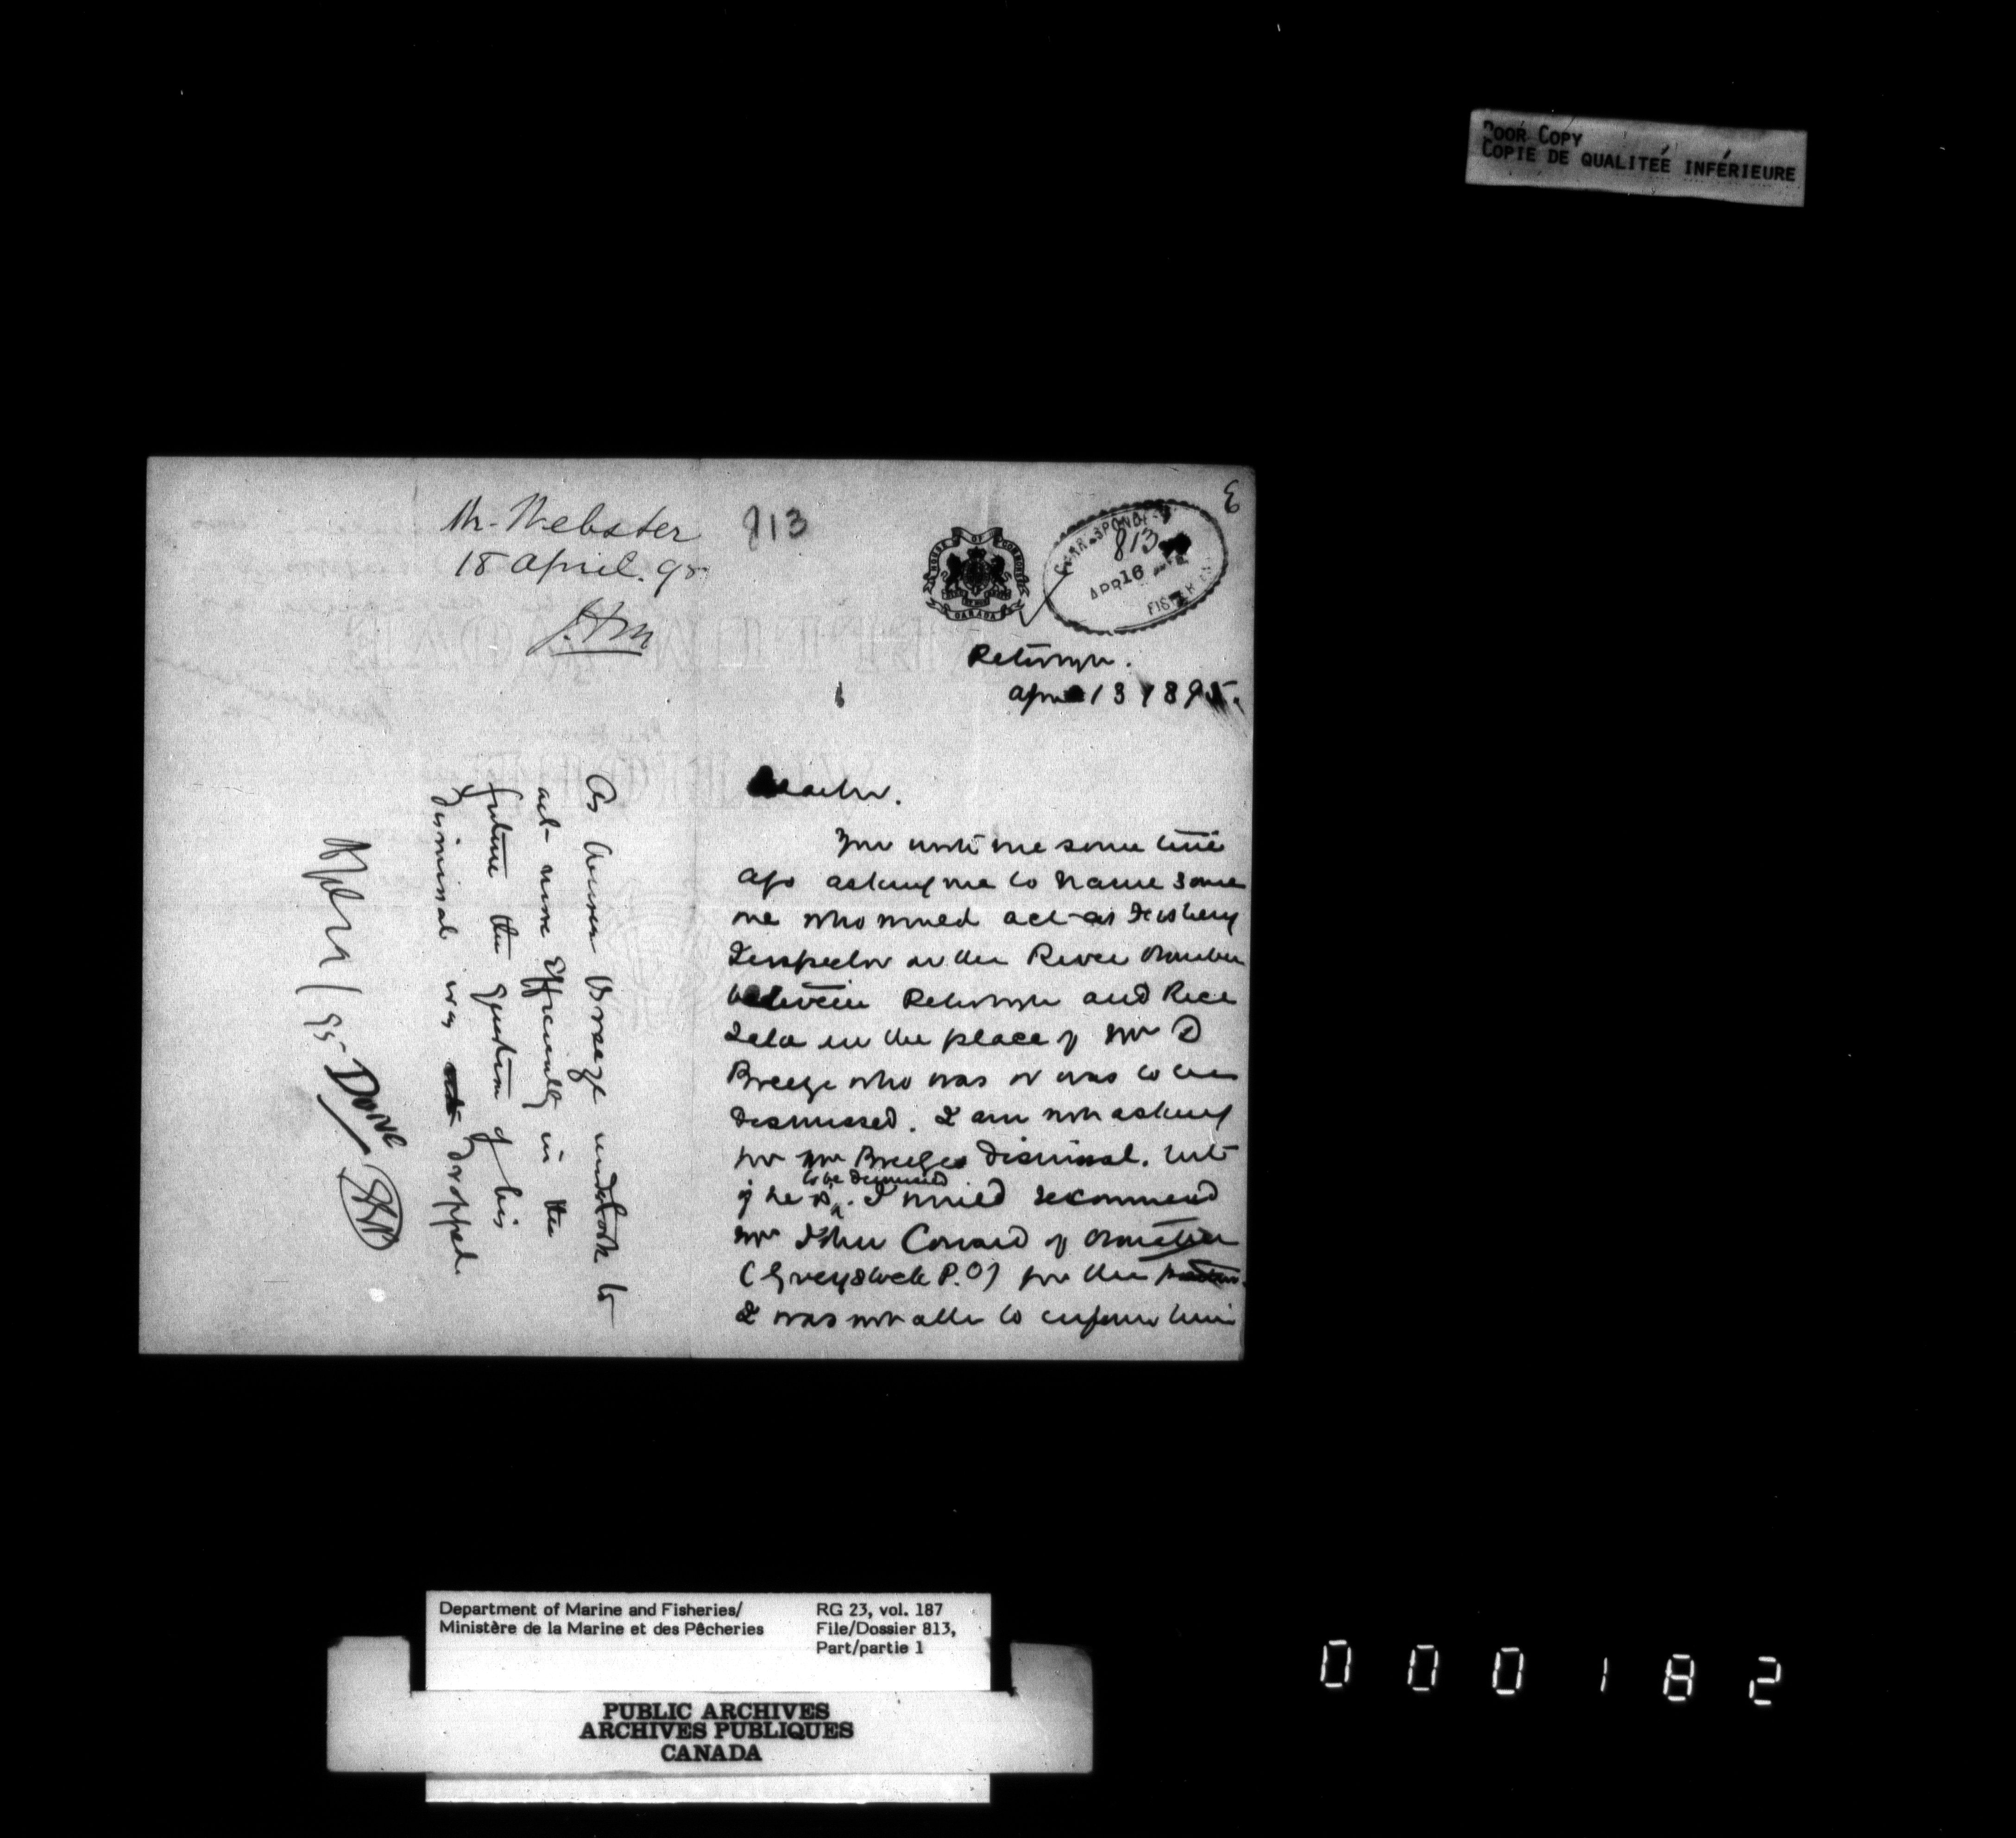 POOR COPY
COPIE DE QUALITEÉ INFÉRIEURE
E
Mr. Webster
18 April. 95
813
HOUSE OF COMMONS
CANADA
813
APR 16
FISHERIES
April 13 1895.
You wrote me some time
ago asking me to name some
one who would act as Fishery
Inspector on the River Otonabee
between and Rice
Lake in the place of Mr D
Breeze who was or was to be
dismissed. I am not asking
for Mr Breezes dismissal. but
to be dismissed
if he is. I would recommend
Mr John Conard of Otonabee
(Greystock P.O) for the position.
I was not able to inform him
As Breeze undertook to
act more efficiently in the
future the question of his
dismissal was dropped.
95
Done
Department of Marine and Fisheries/
Ministère de la Marine et des Pêcheries
RG 23, vol. 187
File/Dossier 813,
Part/partie 1
PUBLIC ARCHIVES
ARCHIVES PUBLIQUES
CANADA
000182